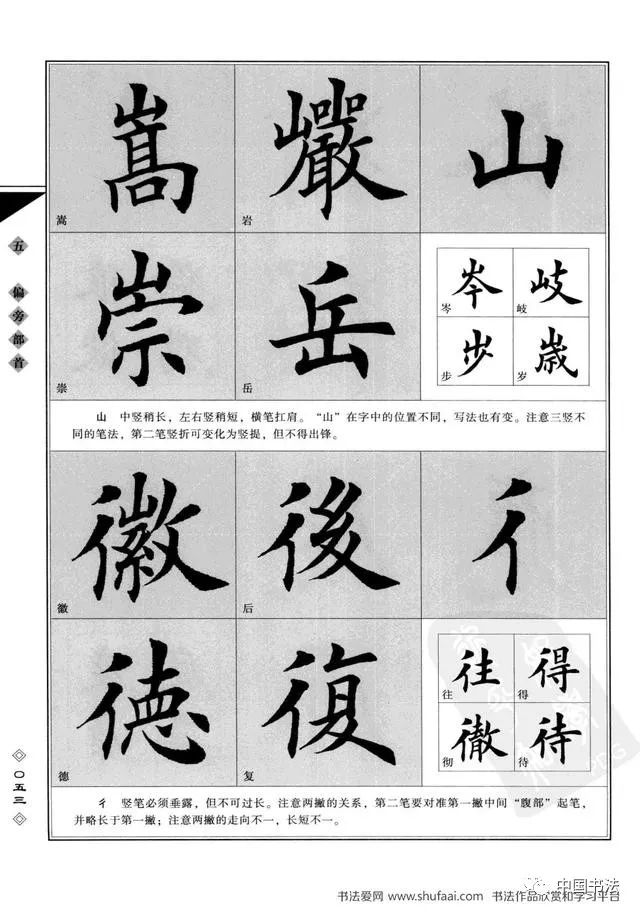 山 巖 嵩
岩 嵩
岳 崇
岳 崇
岐 岑
岐 岑
歲 步
岁 步
山 中竖稍长，左右竖稍短，横笔扛肩。“山”在字中的位置不同，写法也有变。注意三竖不
同的笔法，第二笔竖折可变化为竖提，但不得出锋。
彳 後 徽
后 徽
復 德
复 德
得 往
得 往
待 徹
待 彻
彳 竖笔必须垂露，但不可过长。注意两撇的关系，第二笔要对准第一撇中间“腹部”起笔，
并略长于第一撇；注意两撇的走向不一，长短不一。
五 偏旁部首
〇五三
中国书法
书法爱网 www.shufaai.com 书法作品欣赏和学习平台